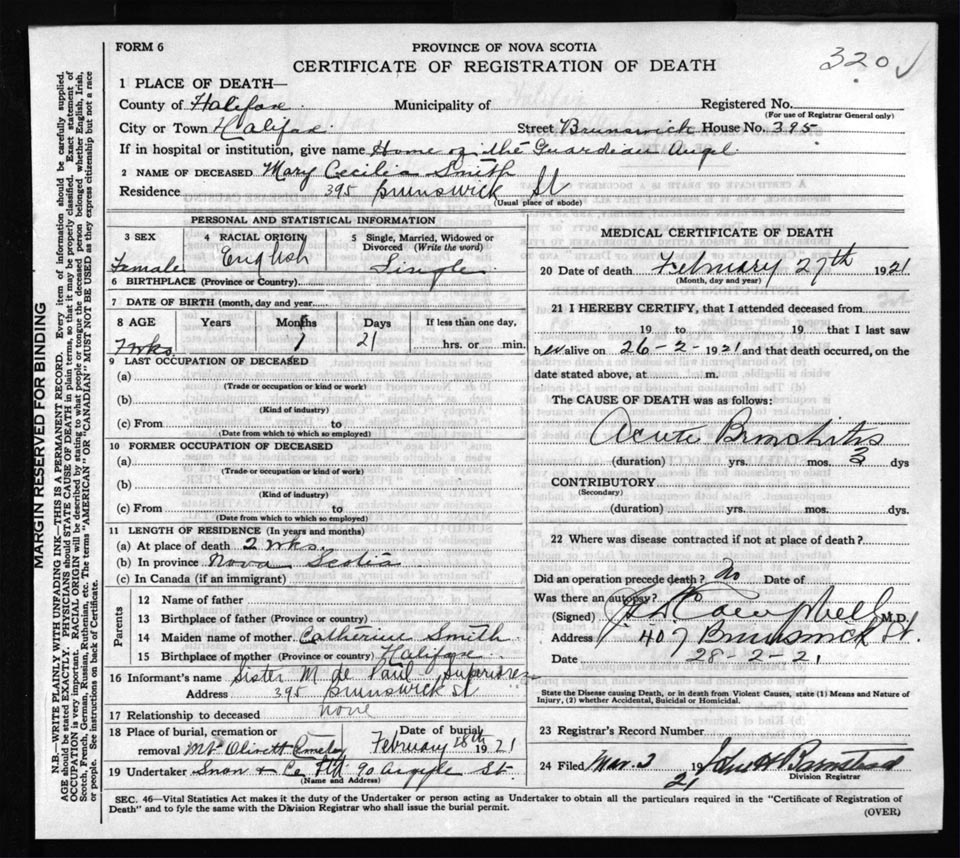 FORM 6
PROVINCE OF NOVA SCOTIA
CERTIFICATE OF REGISTRATION OF DEATH
320
1 PLACE OF DEATH—
County of Halifax Municipality of Registered No.
(For use of Registrar General only)
City or Town Halifax Street Brunswick House No. 395
If in hospital or institution, give name Home of the Guardian Angel
2 NAME OF DECEASED Mary Cecilia Smith
Residence 395 Brunswick St
(Usual place of abode)
PERSONAL AND STATISTICAL INFORMATION
3 SEX 4 RACIAL ORIGIN 5 Single, Married, Widowed or Divorced (Write the word)
Female English Single
6 BIRTHPLACE (Province or Country)
7 DATE OF BIRTH (month, day and year)
8 AGE Years Months Days If less than one day,
7 wks 1 21 hrs. or min.
9 LAST OCCUPATION OF DECEASED
(a)
(Trade or occupation or kind or work)
(b)
(Kind of industry)
(c) From to
(Date from which to which so employed)
10 FORMER OCCUPATION OF DECEASED
(a)
(Trade or occupation or kind of work)
(b)
(Kind of industry)
(c) From to
(Date from which to which so employed)
11 LENGTH OF RESIDENCE (In years and months)
(a) At place of death 2 wks.
(b) In province Nova Scotia
(c) In Canada (if an immigrant)
Parents
12 Name of father
13 Birthplace of father (Province or country)
14 Maiden name of mother Catherine Smith
15 Birthplace of mother (Province or country) Halifax
16 Informant's name Sister M. de Paul Superioress
Address 395 Brunswick St
17 Relationship to deceased none
18 Place of burial, cremation or removal Mt Olivett Cemetey
Date of burial February 28th 1921
19 Undertaker Snow & Co Ltd 90 Argyle St.
(Name and Address)
MEDICAL CERTIFICATE OF DEATH
20 Date of death February 27th 1921
(Month, day and year)
21 I HEREBY CERTIFY, that I attended deceased from
19 to 19 that I last saw
her alive on 26-2-1921 and that death occurred, on the
date stated above, at m.
The CAUSE OF DEATH was as follows:
Acute Bronchitis
(duration) yrs. mos. 3 dys
CONTRIBUTORY
(Secondary)
(duration) yrs. mos. dys.
22 Where was disease contracted if not at place of death?
Did an operation precede death? No Date of
Was there an autopsy? No
(Signed) Campbell M.D.
Address 407 Brunswick St.
Date 28-2-21
State the Disease causing Death, or in death from Violent Causes, state (1) Means and Nature of
Injury, (2) whether Accidental, Suicidal or Homicidal.
23 Registrar's Record Number
24 Filed Mar. 3 1921 John H Barnstead
Division Registrar
SEC. 46—Vital Statistics Act makes it the duty of the Undertaker or person acting as Undertaker to obtain all the particulars required in the "Certificate of Registration of
Death" and to fyle the same with the Division Registrar who shall issue the burial permit.
(OVER)
MARGIN RESERVED FOR BINDING
N.B.—WRITE PLAINLY WITH UNFADING INK—THIS IS A PERMANENT RECORD. Every item of information should be carefully supplied.
AGE should be stated EXACTLY. PHYSICIANS should STATE CAUSE OF DEATH in plain terms, so that it may be properly classified. Exact statement of
OCCUPATION is very important. RACIAL ORIGIN will be described by stating to what people or tongue the deceased person belonged whether English, Irish,
Scotch, French, German, Russian, Ruthenian, etc. The terms "AMERICAN" OR "CANADIAN" MUST NOT BE USED as they express citizenship but not a race
or people. See instructions on back of Certificate.